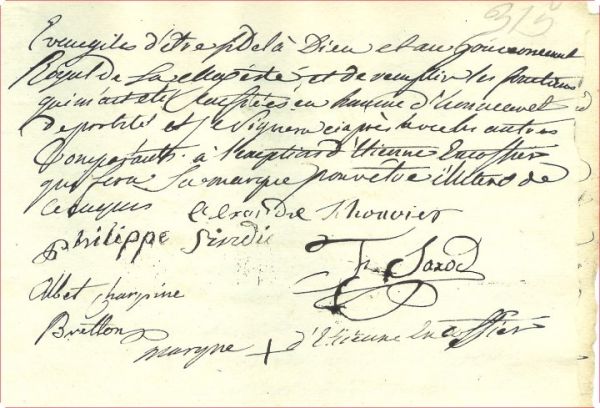 315
Evangiles d'etre fidel à Dieu et au Gouvernement
Royal de Sa Majésté et de remplir les fonctions
qui m'ont été Confiées en homme d'honneur et
de probité et je signera ci après avec les autres
Comparants à l'exception d'Etienne Encoffier
qui fera Sa marque pour etre illitéré de
ce requis Alexandre Thouvier
Philippe
Th Saxod
Albet
Bretton
marque + d'Etienne Encoffier